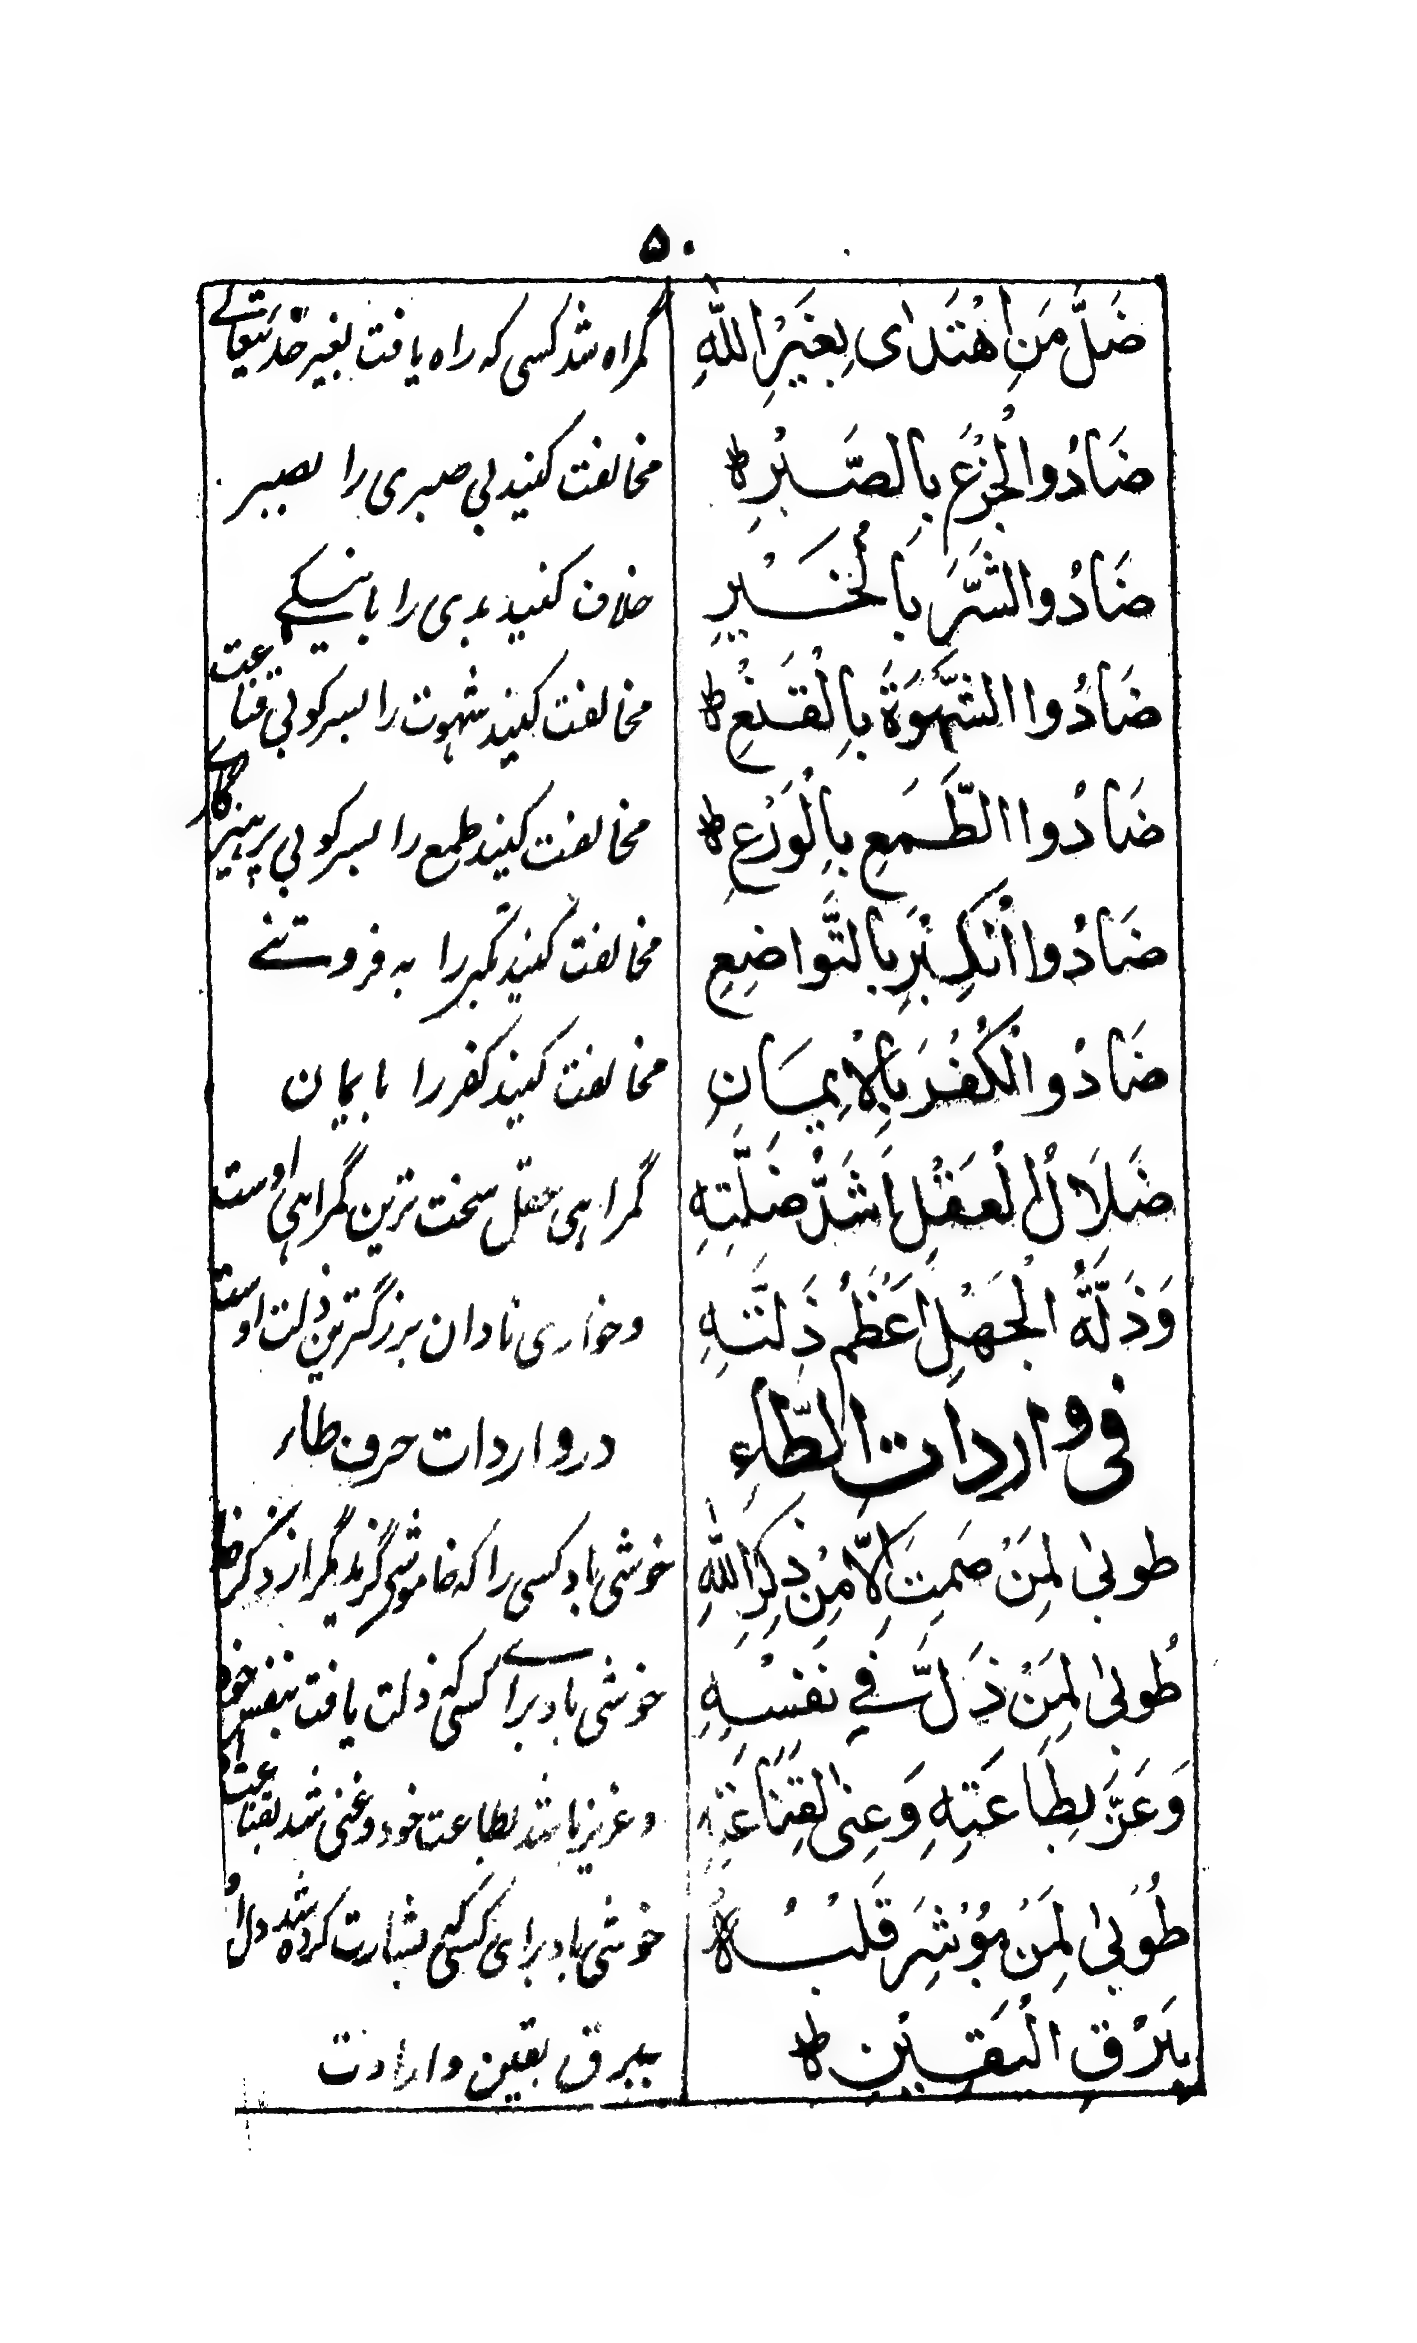 ۵۰
ضَلَّ مَنِ اهْتَدٰای بِغَیْرِ اللّٰهِ
گمراه شد کسی که راه یافت بغیر خدایتعالے
ضَادُوا الْجَزْعَ بِالصَّبْرِ ط
مخالفت کنید بی صبری را بصبر
ضَادُوا الشَّرَّ بِالْخَیْرِ
خلاف کنید بدی را با نیکے
ضَادُوا الشَّهْوَةَ بِالْقَنْعِ ط
مخالفت کنید شهوت را بسرکوبی قناعت
ضَادُوا الطَّمَعِ بِالْوَرْعِ ط
مخالفت کنید طمع را بسرکوبی پرهیزگارے
ضَادُوا الْکِبْرِ بِالتَّوَاضِعِ
مخالفت کنید تکبر را به فروتنے
ضَادُوا الْکُفْرَ بِالْاِیمَانِ
مخالفت کنید کفر را بایمان
ضَلَالُ الْعَقْلِ اَشَدُّ ضَلَّتِهِ
گمراهی عقل سخت ترین گمراهی اوست
وَذَلَّةُ الْجَهْلِ اَعْظَمُ ذَلَّتِهِ
وخواری نادان بزرگترین ذلت اوست
فی واردات الطَّاءِ
در واردات حرف طاء
طوبیٰ لِمَنْ صَمِتَ اِلَّا مِنْ ذِکْرِ اللّٰهِ
خوشی باد کسی را که خاموشی گزید مگر از ذکر خدا
طُوبیٰ لِمَنْ ذَلَّ فِے نَفْسِهِ
خوشی باد براے کسی که ذلت یافت بنفس خود
وَعَزَّ بِطَاعَتِهِ وَغِنٰی بِقِنَاعَتِهِ
وعزیز باشد بطاعت خود وغنی شد بقناعت
طُوْبیٰ لِمَنْ بُوْشِرَ قَلْبُهُ
خوشی باد برای کسی که بشارت کرده شد دل او
بِبَرْقِ الْیَقِیْنِ ط
ببرق یقین وارادت